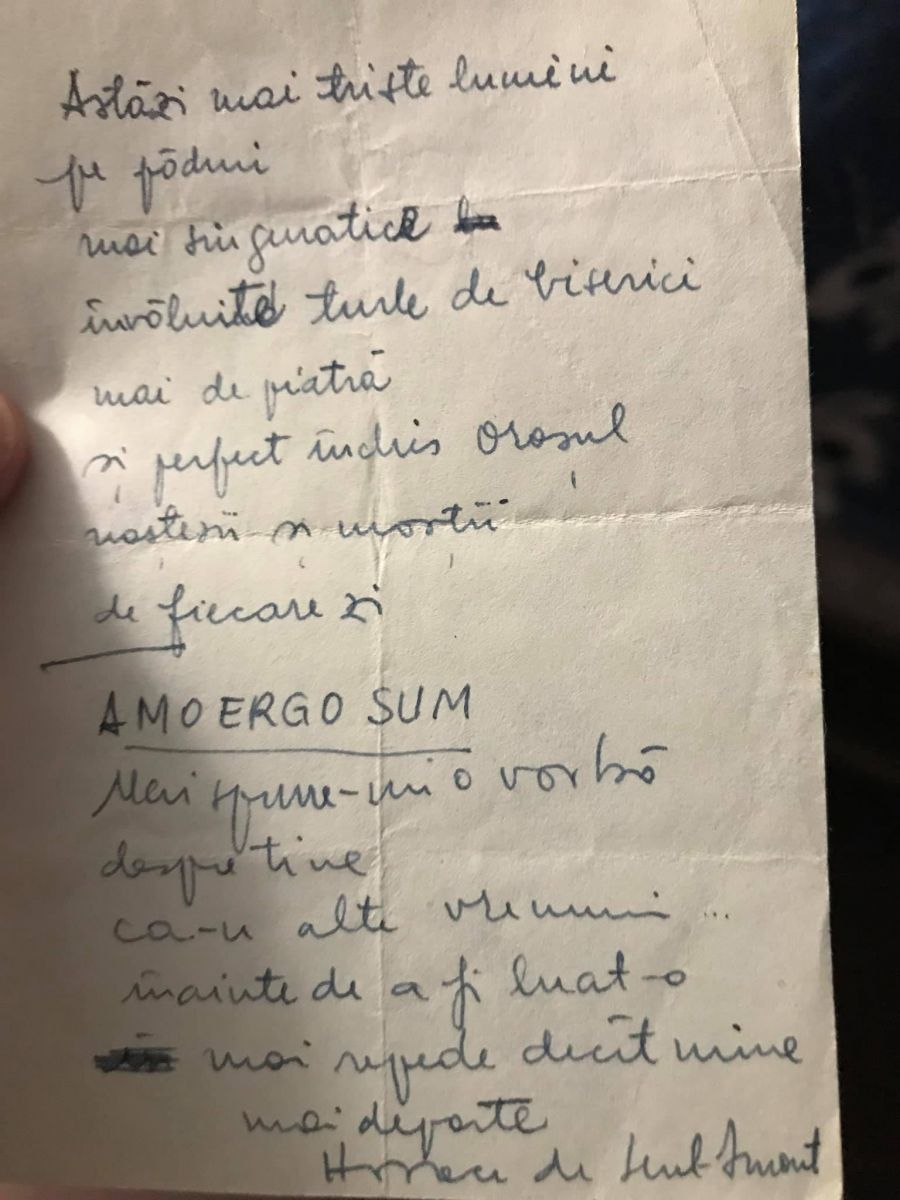 Astăzi mai triste lumini
pe păduri
mai singuratice
învăluite turle de biserici
mai de piatră
și perfect închis Orașul
nașterii și morții
de fiecare zi
AMO ERGO SUM
Mai spune-mi o vorbă
despre tine
ca-n alte vremuri...
înainte de a fi luat-o
mai repede decît mine
mai departe
de